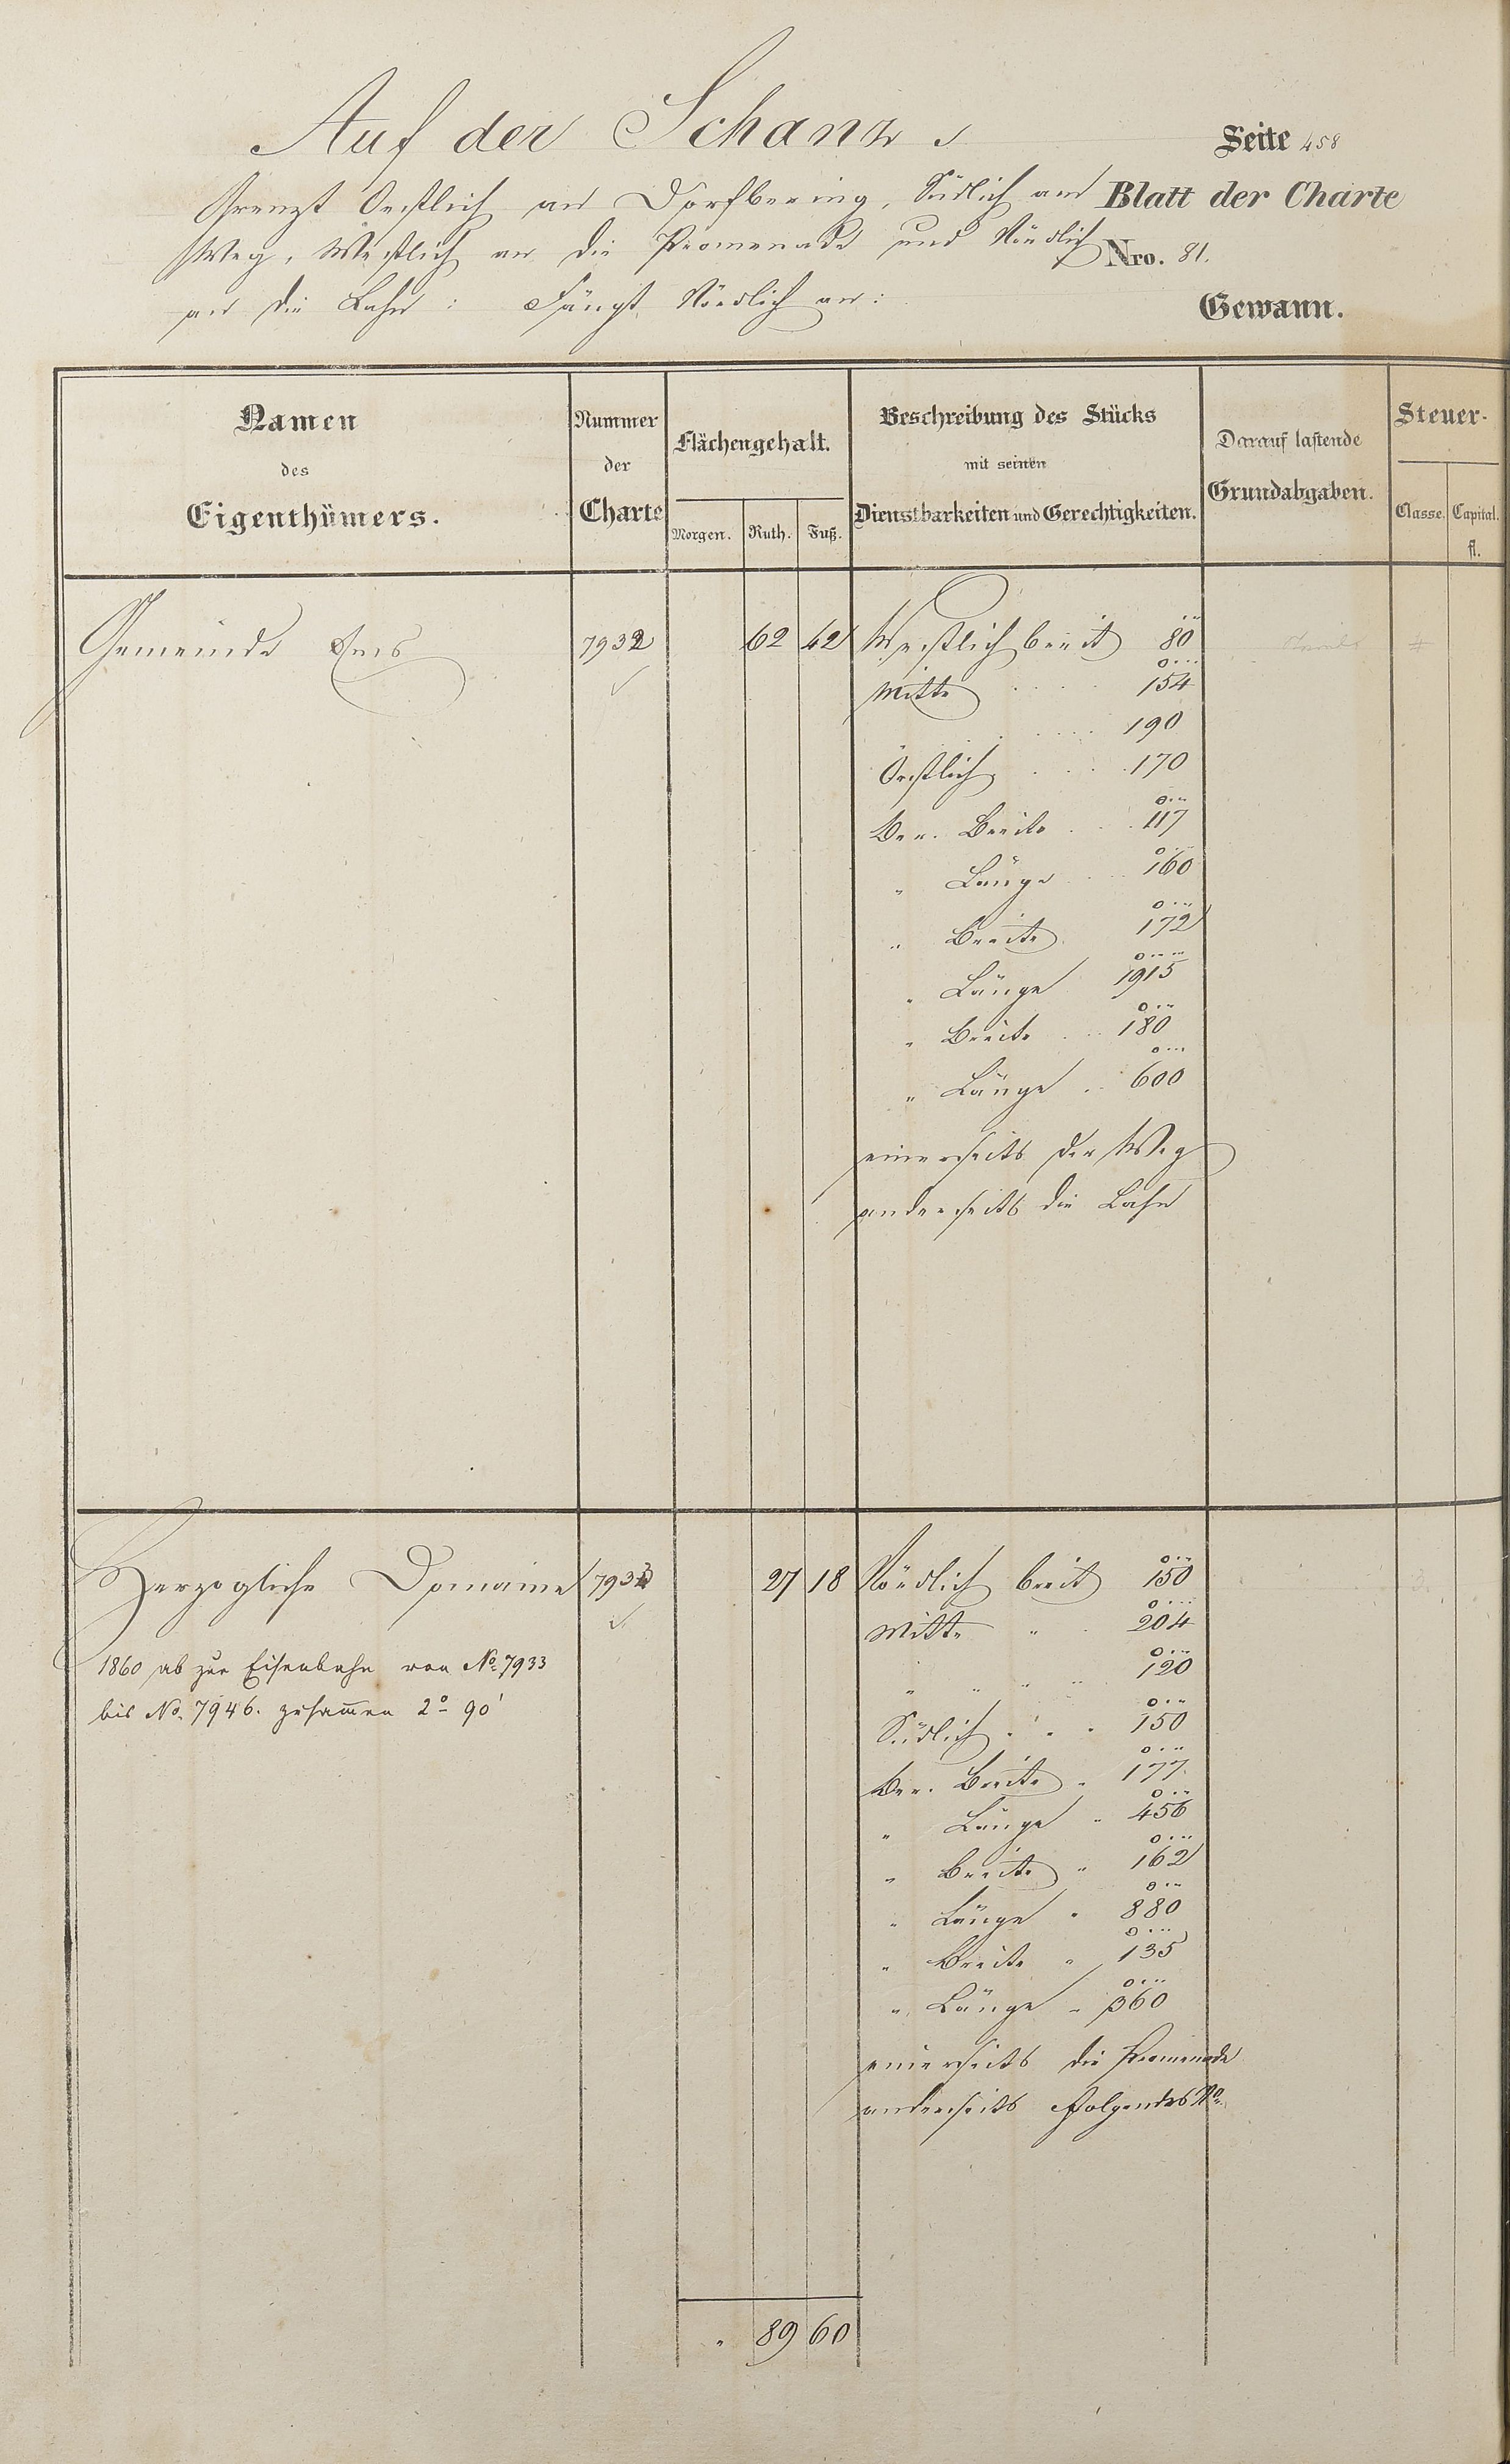 Auf der Schanz
Seite 458
Grenzt Oestlich an Dorfbering, Südlich am
Blatt der Charte
Weg, Westlich an die Promenade und Nördlich
Nro. 81.
an die Lahn: Fängt Nördlich an:
Gewann.
Namen
des
Eigenthümers.
Nummer
der
Charte
Flächengehalt.
Morgen. Ruth. Fuß.
Beschreibung des Stücks
mit seinen
Dienstbarkeiten und Gerechtigkeiten.
Darauf lastende
Grundabgaben.
Steuer-
Classe. Capital.
fl.
Gemeinde Ems 7932 62 42 Westlich breit 80
Mitte 154
190
Oestlich 170
Ber. Breite 117
" Länge 160
" Breite 172
" Länge 1915
" Breite 180
" Länge 600
einerseits der Weg
anderseits die Lahn
Herzogliche Domaine 7933 27 18 Nördlich breit 150
Mitte " 204
" " " " 120
1860 ab zur Eisenbahn von No. 7933
bis No. 7946. zusammen 2° 90'
Südlich " " " 150
Ber. Breite " 177
" Länge " 456
" Breite " 162
" Länge " 880
" Breite " 135
" Länge " 360
einerseits die Promenade
anderseits folgendes No.
" 89 60